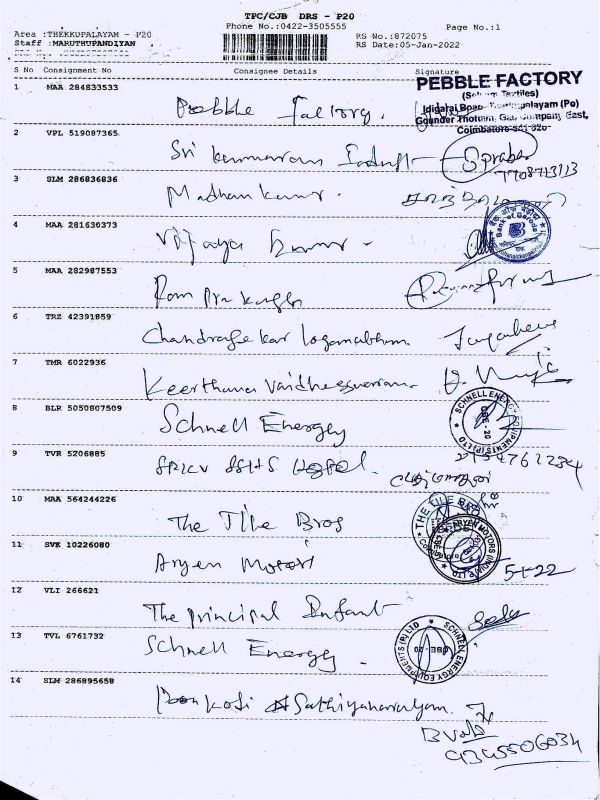 TPC/CJB DRS - P20
Phone No.:0422-3505555
Page No.:1
Area :THEKKUPALAYAM - P20
RS No.:872075
Staff :MARUTHUPANDIYAN
RS Date:05-Jan-2022
S No Consignment No Consignee Details Signature
PEBBLE FACTORY
1 MAA 284833533
Pebble Factory.
Coimbatore
2 VPL 519087365
Sri Kumaran
7708713113
3 SLM 286836836
Madhan Kumar.
4 MAA 281630373
Vijaya Kumar -
Bank of Baroda
5 MAA 282987553
Ram Prakash
6 TRZ 42391859
Chandrasekar Loganathan
7 TMR 6022936
Keerthana Vaidheeswaran.
8 BLR 5050807509
Schnell Energy
SCHNELL ENERGY EQUIPMENTS (P) LTD
9 TVR 5206885
10 MAA 564244226
The Tile Bros
THE TILE BROS
11 SVK 10226080
Aryen Motors
ARYEN MOTORS (INDIA) P LTD
5-1-22
12 VLI 266621
The principal Infant
13 TVL 6761732
Schnell Energy.
SCHNELL ENERGY EQUIPMENTS (P) LTD
14 SLM 286895658
Sathiyanarayanan.
9345506034